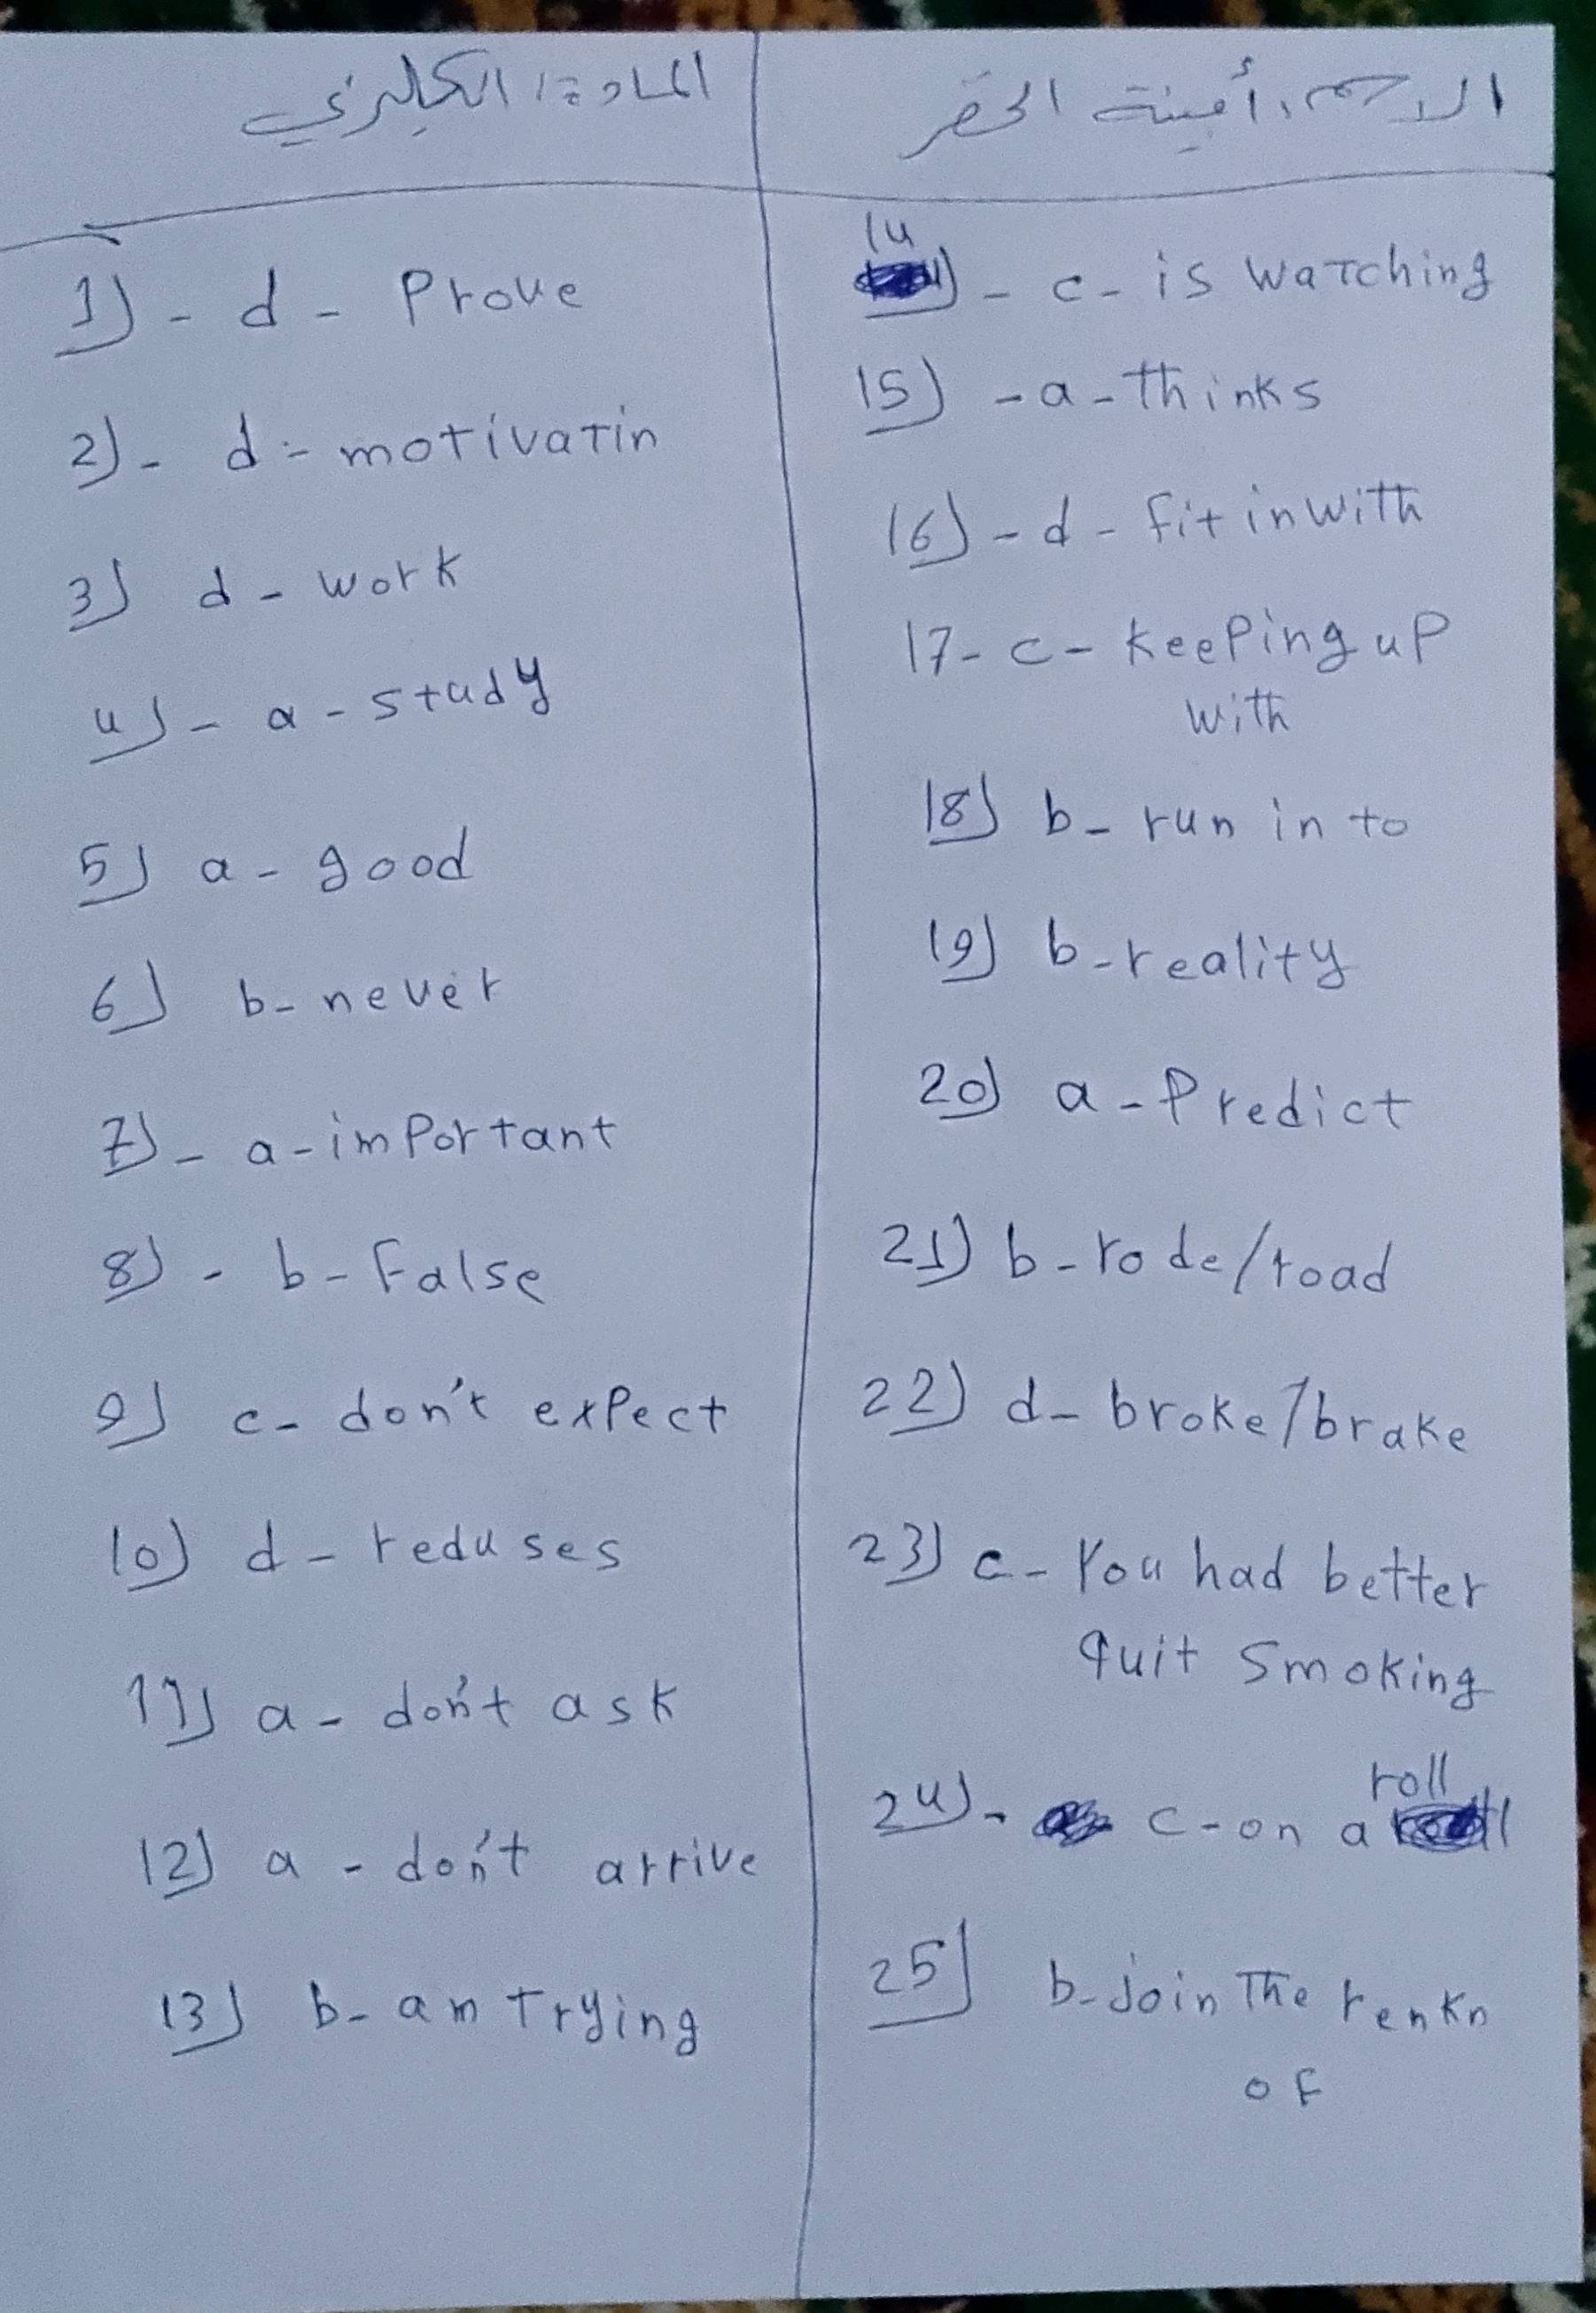 المادة: انكليزي
1) - d - Prove
2) - d - motivatin
3) d - work
4) - a - study
5) a - good
6) b - never
7) - a - important
8) - b - False
9) c - don't expect
10) d - reduses
11) a - don't ask
12) a - don't arrive
13) b - am Trying
الاسم: أمينة الخضر
14) - c - is watching
15) - a - thinks
16) - d - fit in with
17 - c - keeping up
with
18) b - run in to
19) b - reality
20) a - Predict
21) b - rode/road
22) d - broke/brake
23) c - You had better
quit smoking
24) - c - on a roll
25) b - join The renkn
of